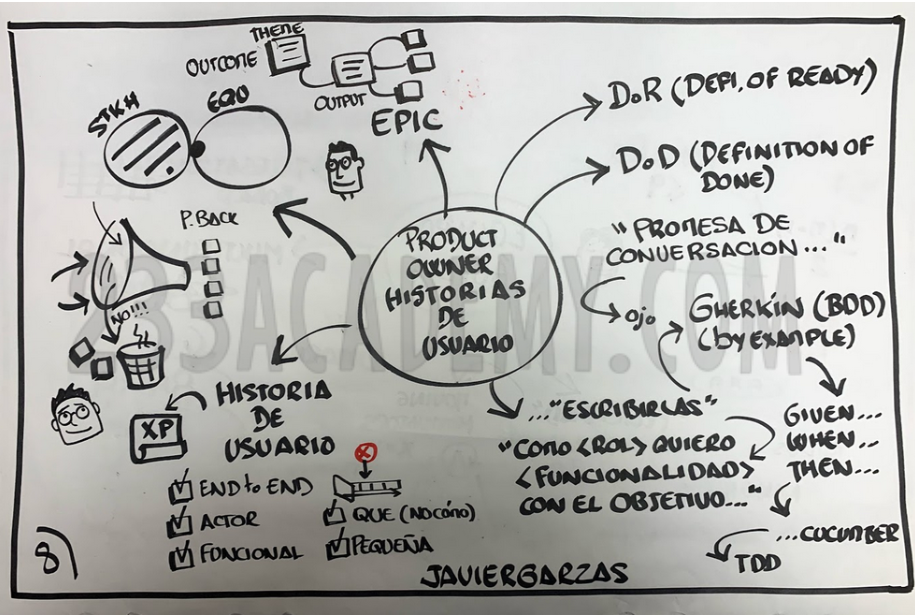 THEME
OUTCOME
OUTPUT
EPIC
STKH
EQU
P.BACK
NO!!!
PRODUCT
OWNER
HISTORIAS
DE
USUARIO
DoR (DEFI. OF READY)
DoD (DEFINITION OF
DONE)
"PROMESA DE
CONVERSACION..."
OJO
GHERKIN (BDD)
(by EXAMPLE)
GIVEN...
WHEN...
THEN...
...CUCUMBER
TDD
..."ESCRIBIRLAS"
"COMO <ROL> QUIERO
<FUNCIONALIDAD>
CON EL OBJETIVO..."
HISTORIA
DE
USUARIO
XP
END to END
ACTOR
FUNCIONAL
QUE (NO CÓMO)
PEQUEÑA
8)
JAVIERGARZAS
233ACADEMY.COM